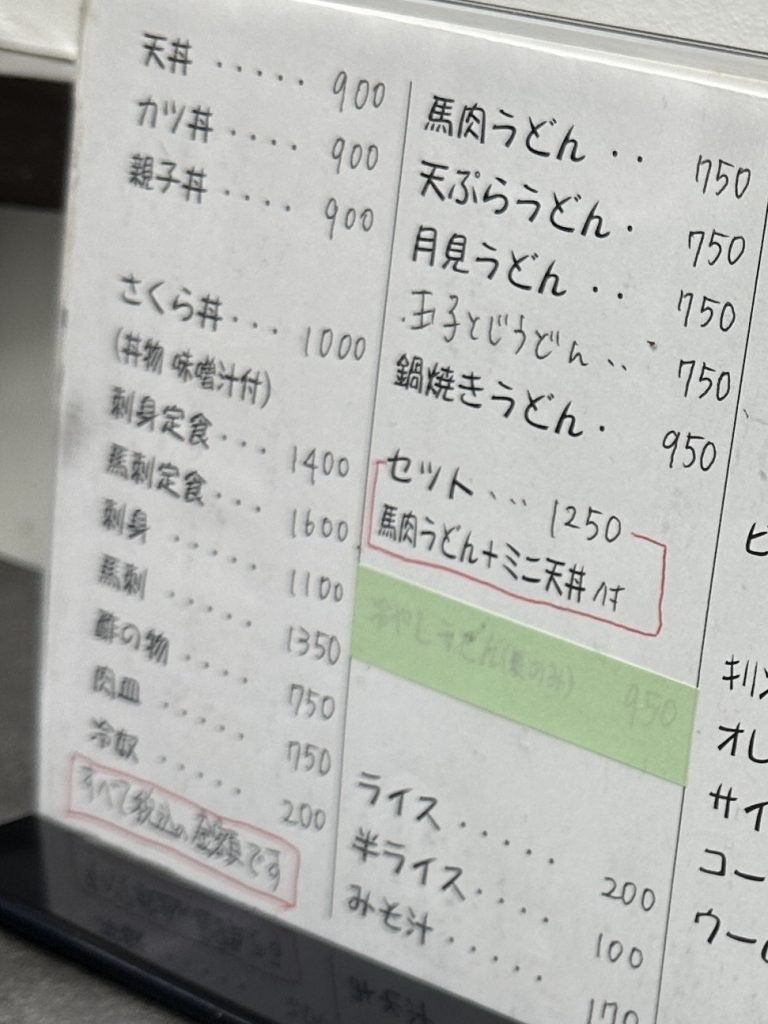 天丼 ····· 900
カツ丼 ···· 900
親子丼 ···· 900
さくら丼 ··· 1000
(丼物 味噌汁付)
刺身定食 ··· 1400
馬刺定食 ··· 1600
刺身 ····· 1100
馬刺 ····· 1350
酢の物 ···· 750
肉皿 ····· 750
冷奴 ····· 200
すべて税込の金額です
馬肉うどん ·· 750
天ぷらうどん · 750
月見うどん ·· 750
玉子とじうどん ·· 750
鍋焼きうどん · 950
セット ··· 1250
馬肉うどん+ミニ天丼 付
冷やしうどん(夏のみ) 950
ライス ····· 200
半ライス ···· 100
みそ汁 ····· 170
ビ
キリン
オレ
サイ
コー
ウーロ